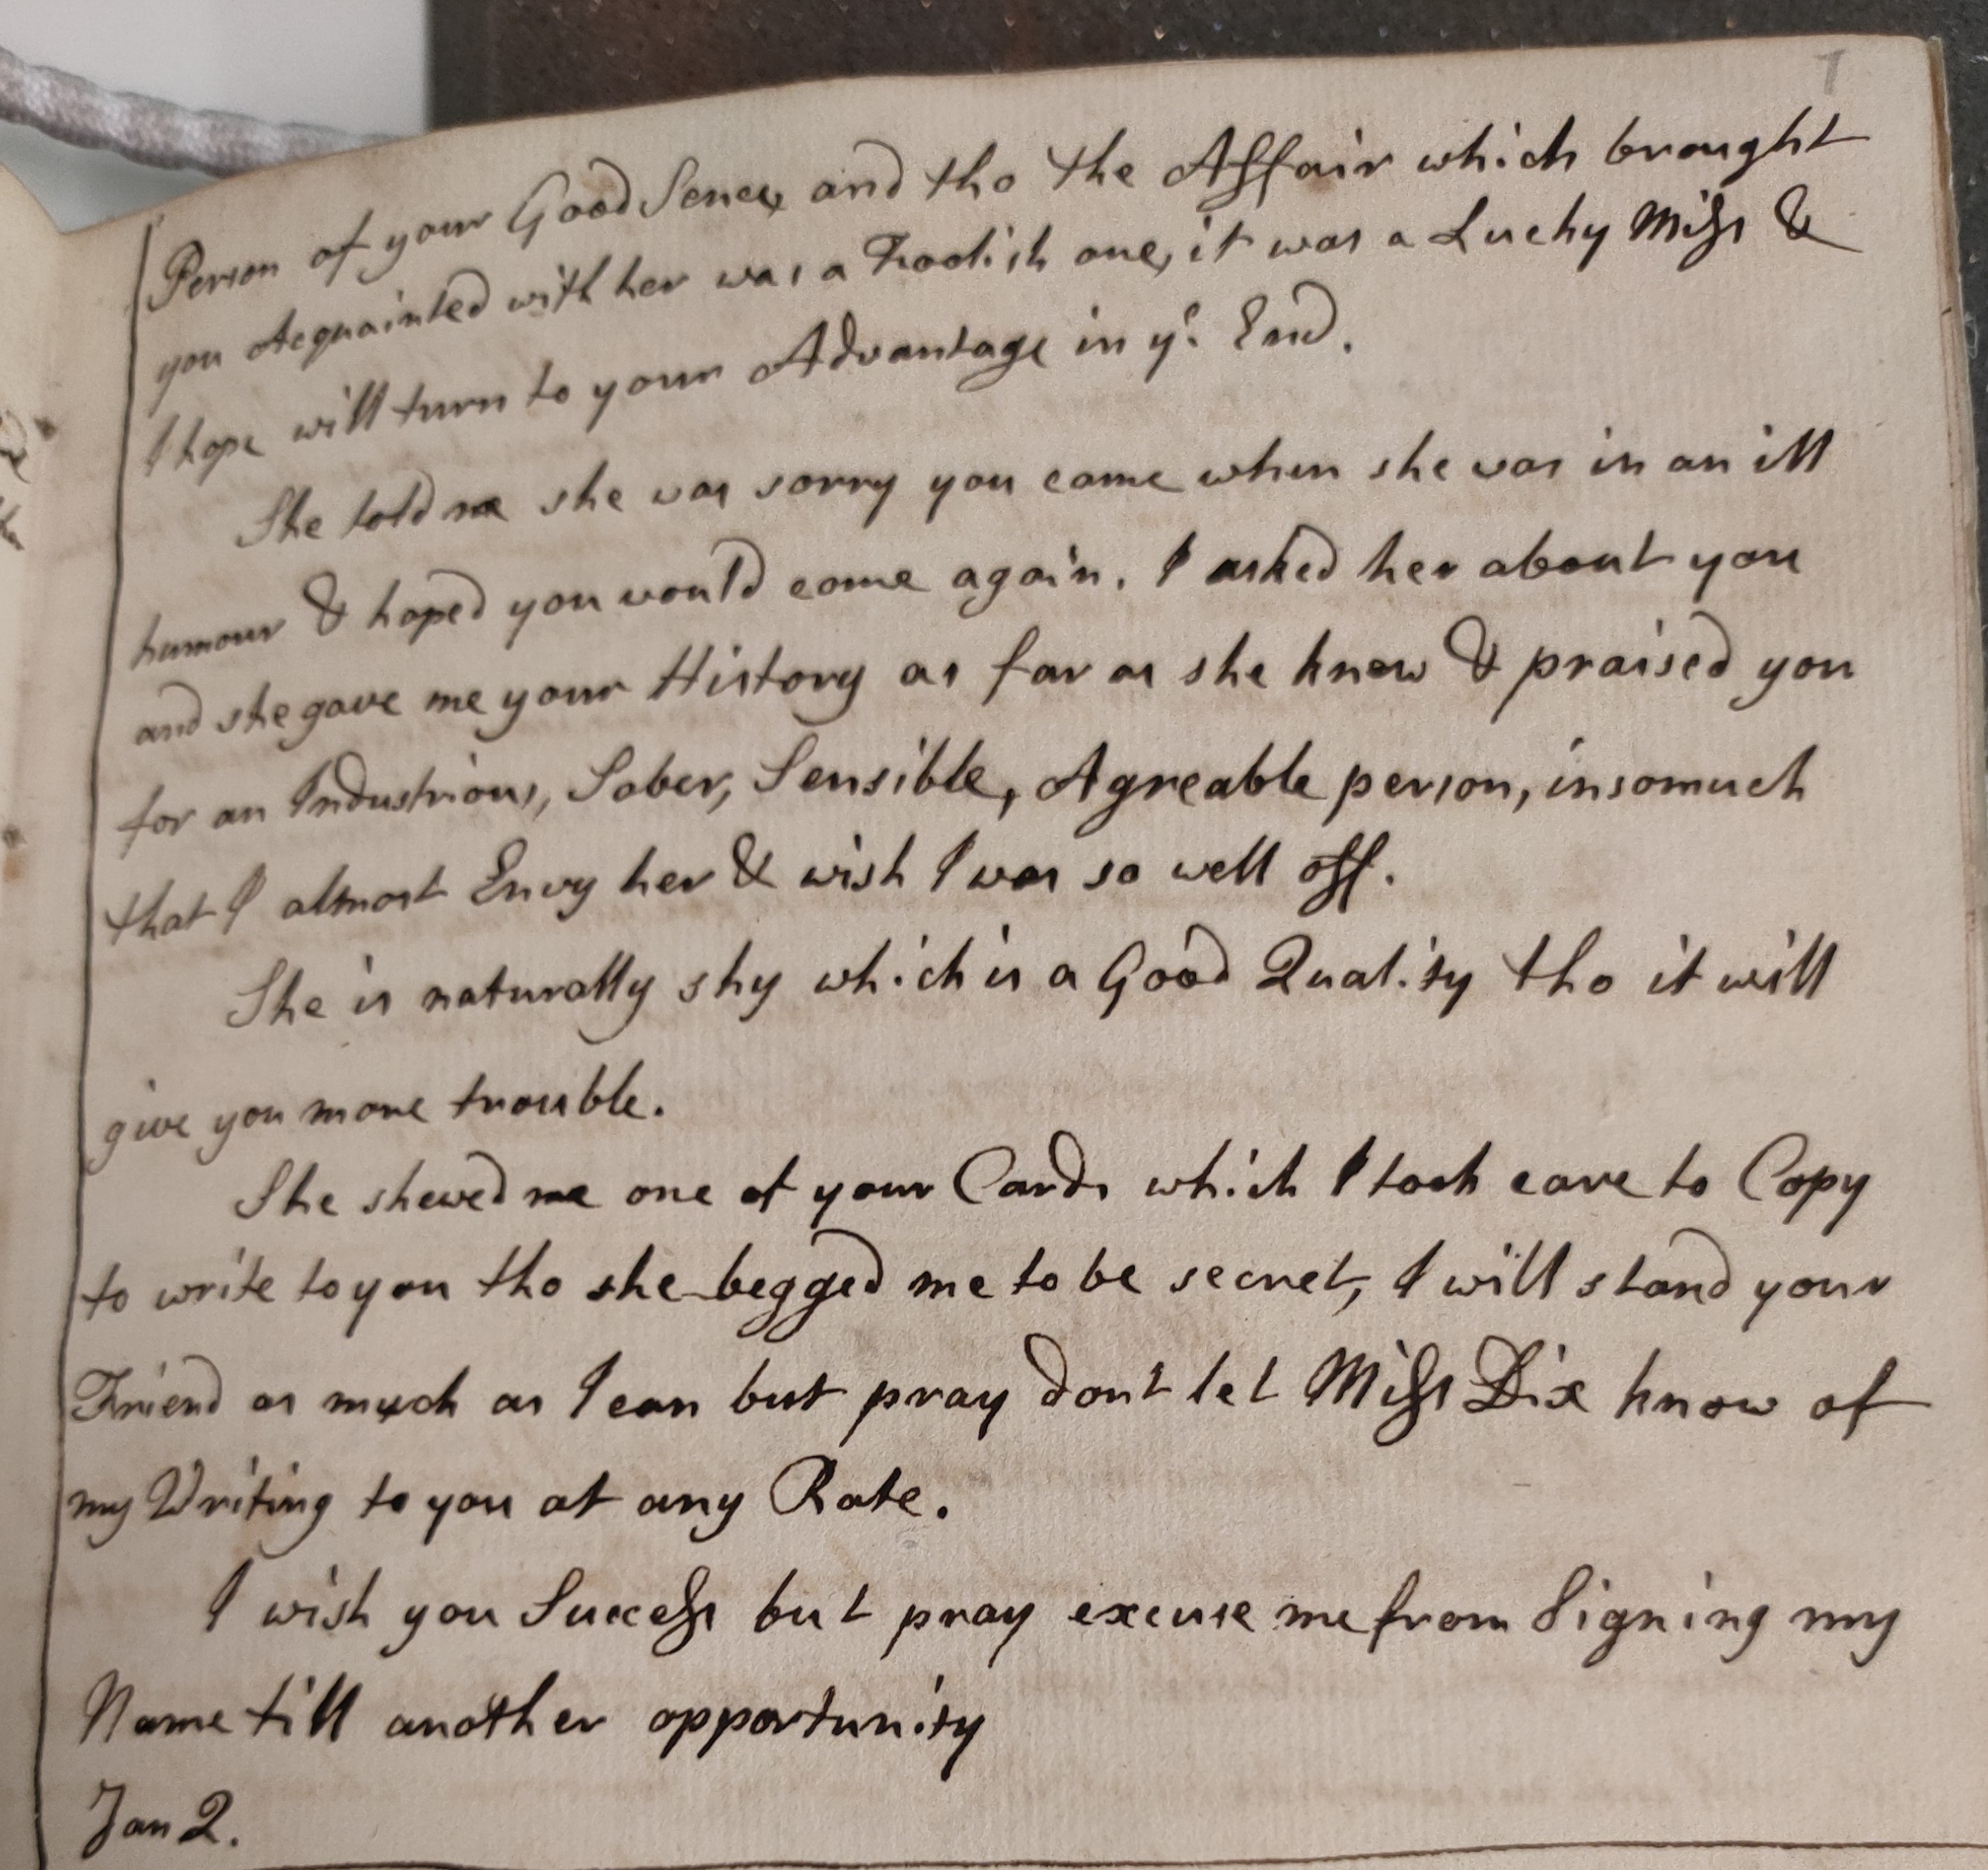 7
Person of your Good Sence, and tho the Affair which brought
you Acquainted with her was a Foolish one, it was a Lucky Miss &
I hope will turn to your Advantage in ye. End.
She told me she was sorry you came when she was in an ill
humour & hoped you would come again. I asked her about you
and she gave me your History as far as she knew & praised you
for an Industrious, Sober, Sensible, Agreable person, insomuch
that I almost Envy her & wish I was so well off.
She is naturally shy which is a Good Quality tho it will
give you more trouble.
She shewed me one of your Cards which I took care to Copy
to write to you tho she begged me to be secret, I will stand your
Friend as much as I can but pray dont let Miss Dix know of
my Writing to you at any Rate.
I wish you Success but pray excuse me from Signing my
Name till another opportunity
Jan 2.